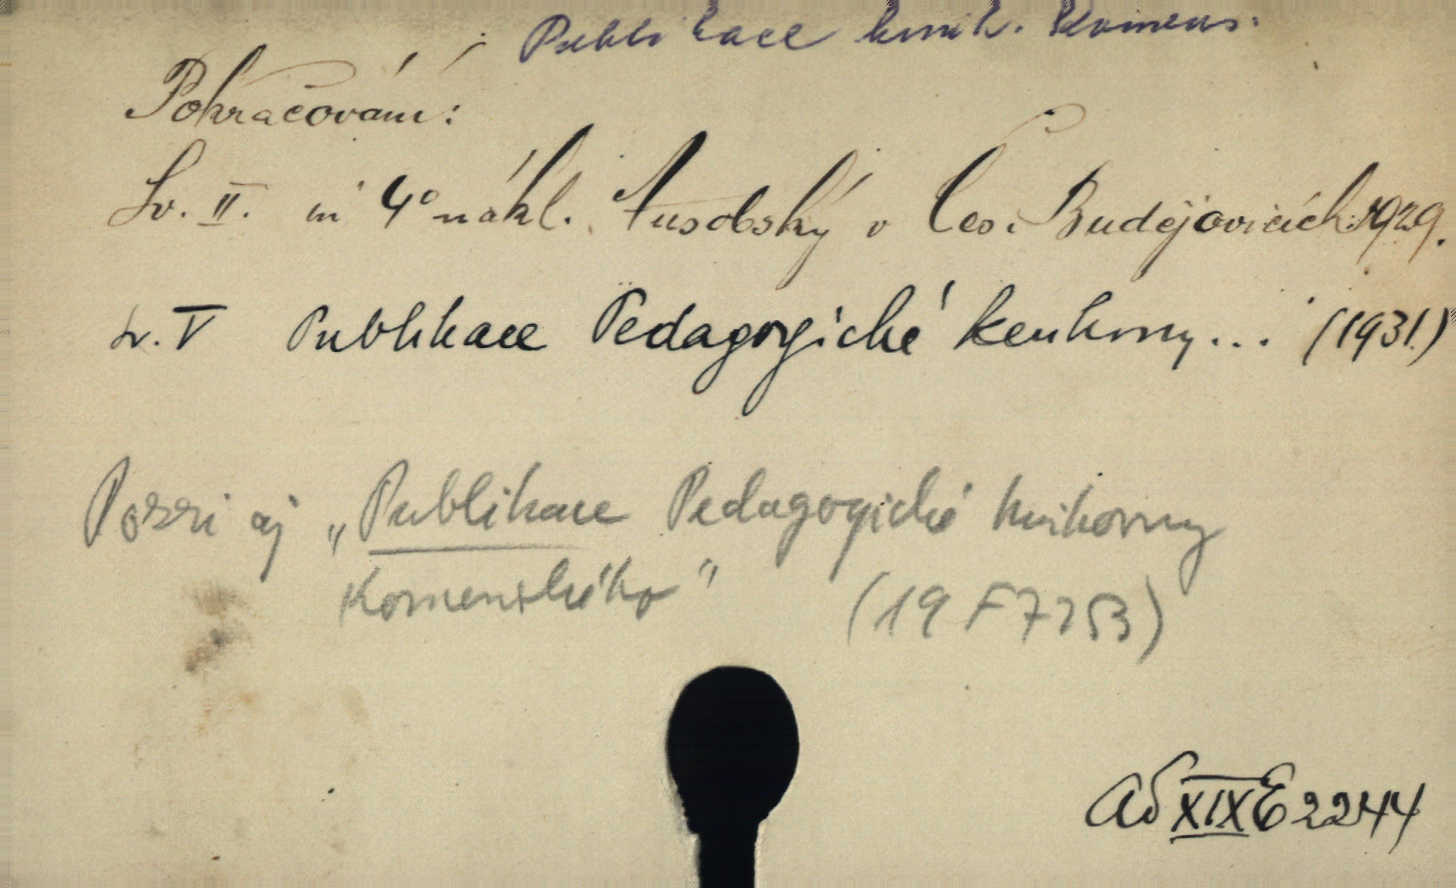 Publikace knih. Komens.
Pokračování:
Sv. II. in 4° nákl. v Čes. Budějovicích 1929.
Sv. V Publikace Pedagogické knihovny... (1931)
Pozri aj „Publikace Pedagogické knihovny
Komenského"
Ad XIX E 2244